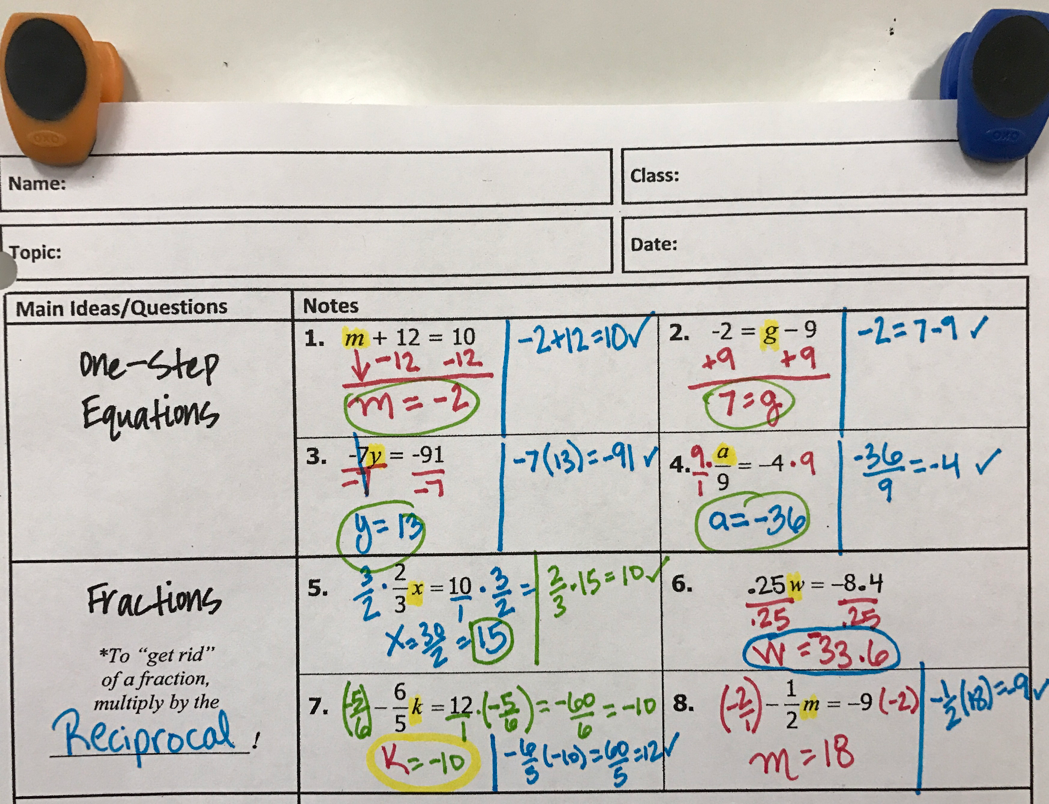 OXO
OXO
Name:
Class:
Topic:
Date:
Main Ideas/Questions
Notes
One-Step
Equations
1. m + 12 = 10
-12 -12
m = -2
-2+12=10✓
2. -2 = g - 9
+9 +9
7 = g
-2 = 7-9 ✓
3. -7y = -91
-7 -7
y = 13
-7(13) = -91 ✓
4. 9/1 · a/9 = -4 · 9
a = -36
-36/9 = -4 ✓
Fractions
*To "get rid"
of a fraction,
multiply by the
Reciprocal!
5. 3/2 · 2/3 x = 10/1 · 3/2 =
x = 30/2 = 15
2/3 · 15 = 10 ✓
6. .25w = -8.4
.25 .25
w = -33.6
7. (-5/6) - 6/5 k = 12/1 · (-5/6) = -60/6 = -10
K = -10
-6/5 (-10) = 60/5 = 12 ✓
8. (-2/1) - 1/2 m = -9 (-2)
m = 18
-1/2 (18) = -9 ✓